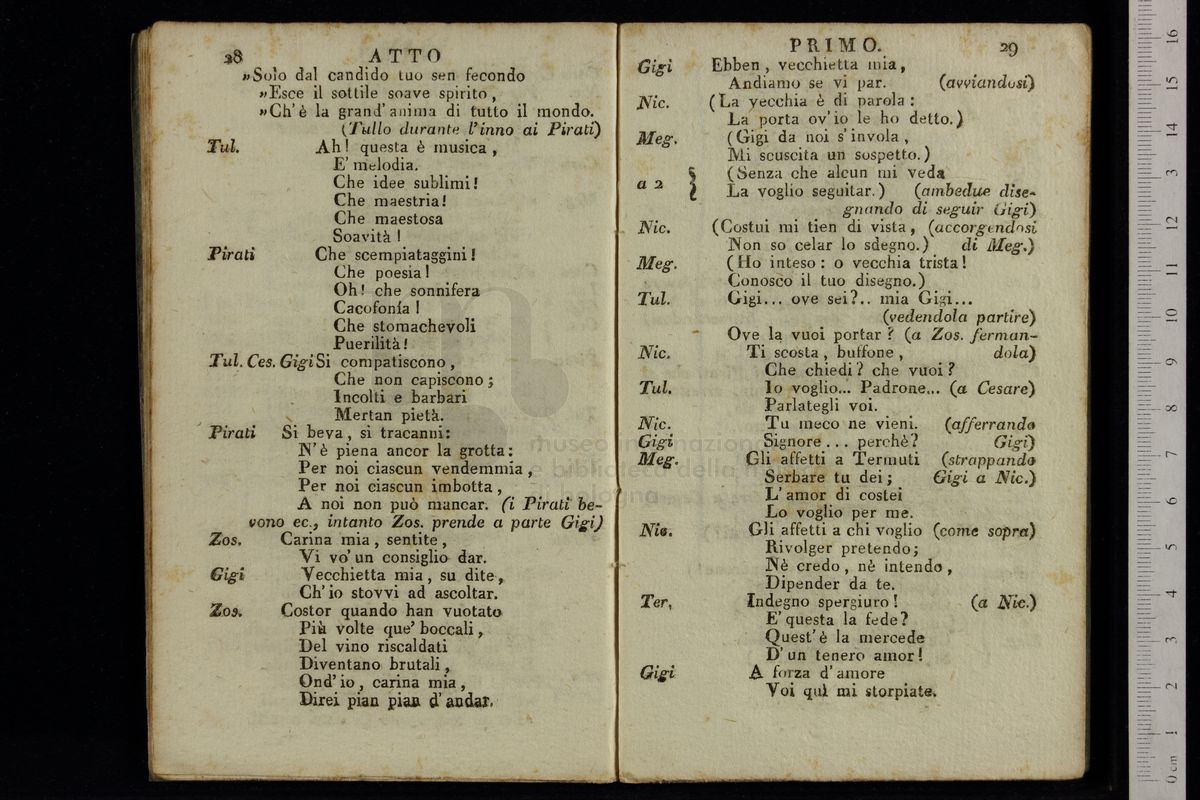 28 ATTO
»Solo dal candido tuo sen fecondo
»Esce il sottile soave spirito,
»Ch'è la grand'anima di tutto il mondo.
(Tullo durante l'inno ai Pirati)
Tul. Ah! questa è musica,
E' melodia.
Che idee sublimi!
Che maestria!
Che maestosa
Soavità!
Pirati Che scempiataggini!
Che poesia!
Oh! che sonnifera
Cacofonía!
Che stomachevoli
Puerilità!
Tul. Ces. Gigi Si compatiscono,
Che non capiscono;
Incolti e barbari
Mertan pietà.
Pirati Si beva, si tracanni:
N'è piena ancor la grotta:
Per noi ciascun vendemmia,
Per noi ciascun imbotta,
A noi non può mancar. (i Pirati be-
vono ec., intanto Zos. prende a parte Gigi)
Zos. Carina mia, sentite,
Vi vo' un consiglio dar.
Gigi Vecchietta mia, su dite,
Ch'io stovvi ad ascoltar.
Zos. Costor quando han vuotato
Più volte que' boccali,
Del vino riscaldati
Diventano brutali,
Ond'io, carina mia,
Direi pian pian d'andar.
PRIMO. 29
Gigi Ebben, vecchietta mia,
Andiamo se vi par. (avviandosi)
Nic. (La vecchia è di parola:
La porta ov'io le ho detto.)
Meg. (Gigi da noi s'invola,
Mi scuscita un sospetto.)
a 2 { (Senza che alcun mi veda
La voglio seguitar.) (ambedue dise-
gnando di seguir Gigi)
Nic. (Costui mi tien di vista, (accorgendosi
Non so celar lo sdegno.) di Meg.)
Meg. (Ho inteso: o vecchia trista!
Conosco il tuo disegno.)
Tul. Gigi... ove sei?.. mia Gigi...
(vedendola partire)
Ove la vuoi portar? (a Zos. ferman-
Nic. Ti scosta, buffone, dola)
Che chiedi? che vuoi?
Tul. Io voglio... Padrone... (a Cesare)
Parlategli voi.
Nic. Tu meco ne vieni. (afferrando
Gigi Signore... perchè? Gigi)
Meg. Gli affetti a Termuti (strappando
Serbare tu dei; Gigi a Nic.)
L'amor di costei
Lo voglio per me.
Nic. Gli affetti a chi voglio (come sopra)
Rivolger pretendo;
Nè credo, nè intendo,
Dipender da te.
Ter. Indegno spergiuro! (a Nic.)
E' questa la fede?
Quest'è la mercede
D'un tenero amor!
Gigi A forza d'amore
Voi quì mi storpiate.
museo internazionale
e biblioteca della musica
di bologna
0 cm 1 2 3 4 5 6 7 8 9 10 11 12 13 14 15 16